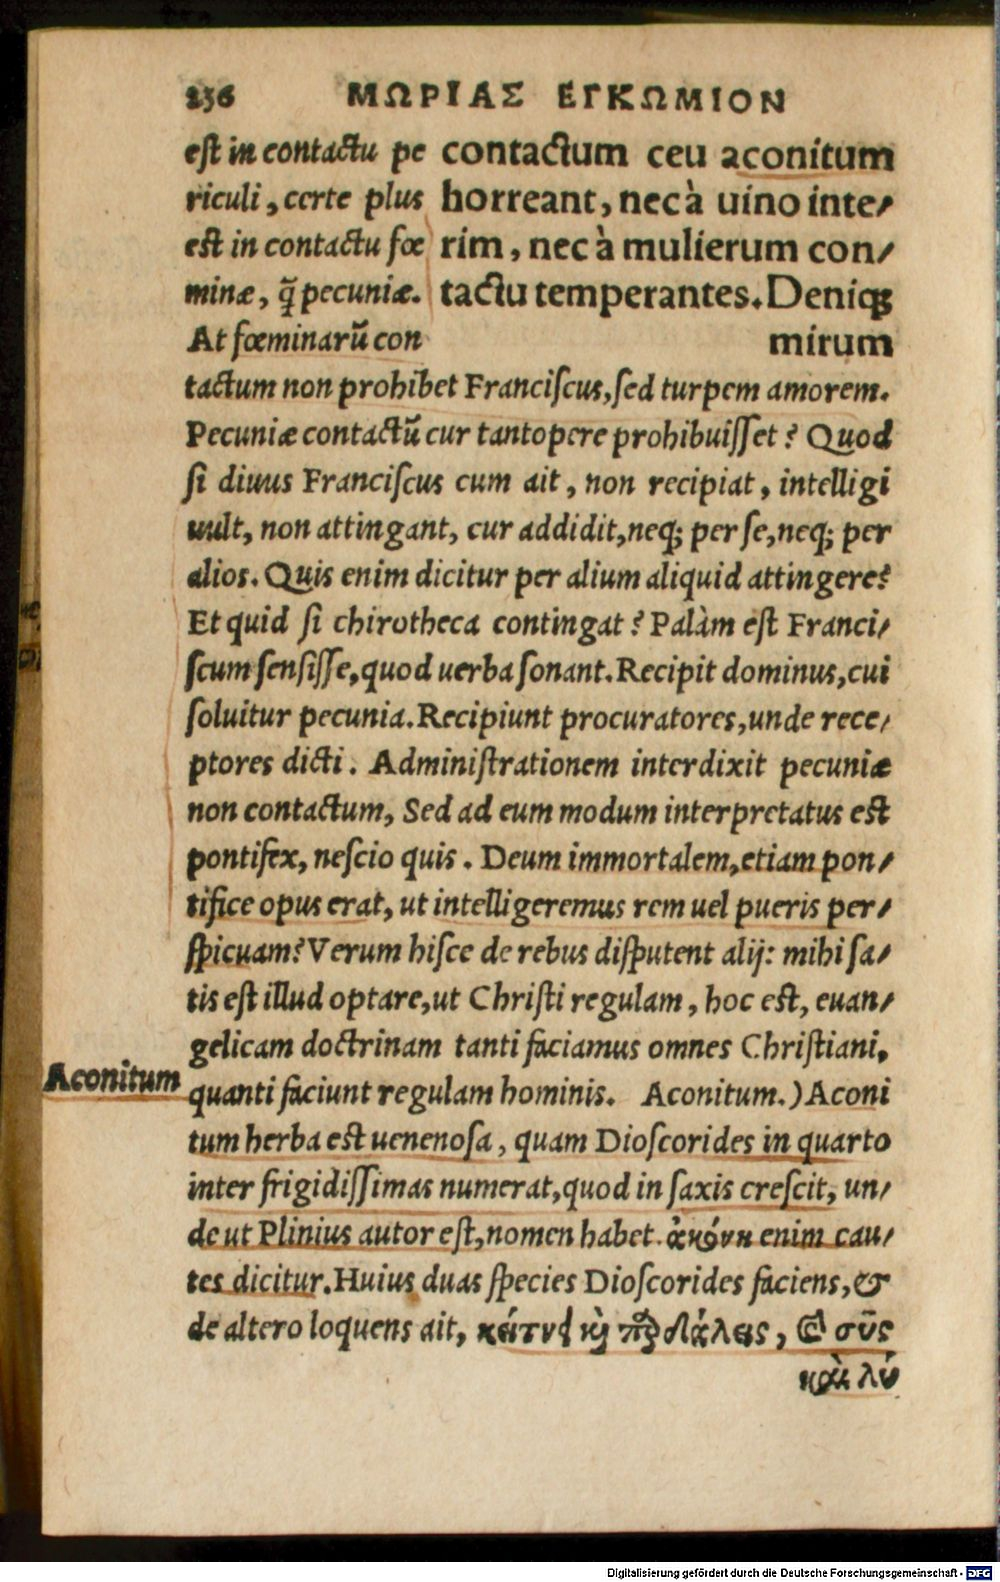 236 ΜΩΡΙΑΣ ΕΓΚΩΜΙΟΝ
contactum ceu aconitum
horreant, nec à uino inte⸗
rim, nec à mulierum con⸗
tactu temperantes. Deniq;
mirum
est in contactu pe
riculi, certe plus
est in contactu fœ
minæ, q̃ pecuniæ.
At fœminarũ con
tactum non prohibet Franciſcus, ſed turpem amorem.
Pecuniæ contactũ cur tantopere prohibuiſſet? Quod
ſi diuus Franciſcus cum ait, non recipiat, intelligi
uult, non attingant, cur addidit, neq; per ſe, neq; per
alios. Quis enim dicitur per alium aliquid attingere?
Et quid ſi chirotheca contingat? Palàm eſt Franci⸗
ſcum ſenſiſſe, quod uerba ſonant. Recipit dominus, cui
ſoluitur pecunia. Recipiunt procuratores, unde rece⸗
ptores dicti. Adminiſtrationem interdixit pecuniæ
non contactum, Sed ad eum modum interpretatus eſt
pontifex, neſcio quis. Deum immortalem, etiam pon⸗
tifice opus erat, ut intelligeremus rem uel pueris per⸗
ſpicuam? Verum hiſce de rebus diſputent alij: mihi ſa⸗
tis eſt illud optare, ut Chriſti regulam, hoc eſt, euan⸗
gelicam doctrinam tanti faciamus omnes Chriſtiani,
Aconitum
quanti faciunt regulam hominis. Aconitum.) Aconi
tum herba eſt uenenoſa, quam Dioſcorides in quarto
inter frigidiſſimas numerat, quod in ſaxis creſcit, un⸗
de ut Plinius autor eſt, nomen habet. ἀκόνη enim cau⸗
tes dicitur. Huius duas ſpecies Dioſcorides faciens, &
de altero loquens ait, καὶ σῦς
καὶ λύ
Digitalisierung gefördert durch die Deutsche Forschungsgemeinschaft - DFG